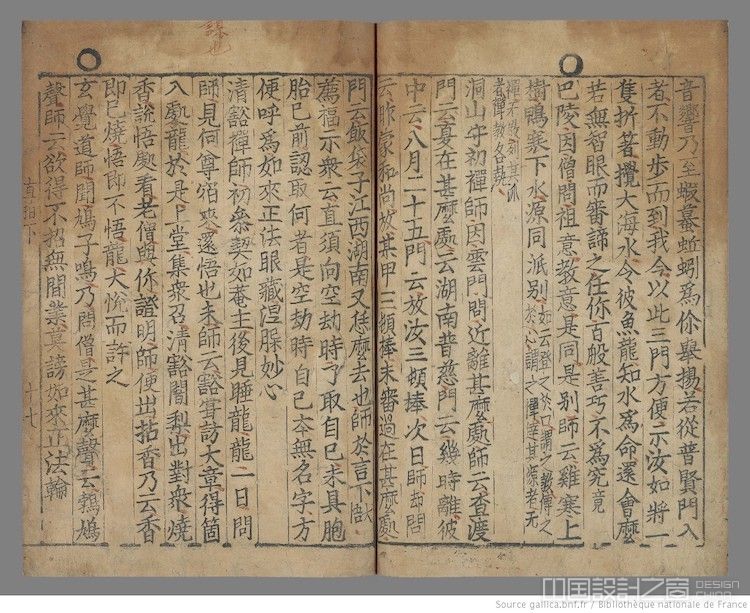 音響乃至蝦蟇蚯蚓爲你舉揚若從普賢門入
者不動步而到我今以此三門方便示汝如將一
隻折筯攪大海水令彼魚龍知水爲命還會麼
若無智眼而審諦之任你百般善巧不爲究竟
巴陵因僧問祖意教意是同是別師云雞寒上
樹鴨寒下水源同派別
洞山守初禪師因雲門問近離甚麼處師云查渡
門云夏在甚麼處云湖南普慈門云幾時離彼
中云八月二十五門云放汝三頓棒次日師却問
云昨蒙和尚放某甲三頓棒未審過在甚麼處
門云飯袋子江西湖南又恁麼去也師於言下大悟
薦福示衆云直須向空劫時了取自己未具胞
胎已前認取何者是空劫時自己本無名字方
便呼爲如來正法眼藏涅槃妙心
清豁禪師初參契如菴主後見睡龍龍一日問
師見何尊宿來還悟也未師云豁甞訪大章得箇
入處龍於是上堂集衆召清豁闍梨出對衆燒
香說悟處看老僧與你證明師便出拈香乃云香
即已燒悟即不悟龍大悅而許之
玄覺道師聞鳩子鳴乃問僧是甚麼聲云鵓鳩
聲師云欲得不招無間業莫謗如來正法輪
直指下
十七
中国設計之窗
DESIGN
CHINA
Source gallica.bnf.fr / Bibliothèque nationale de France